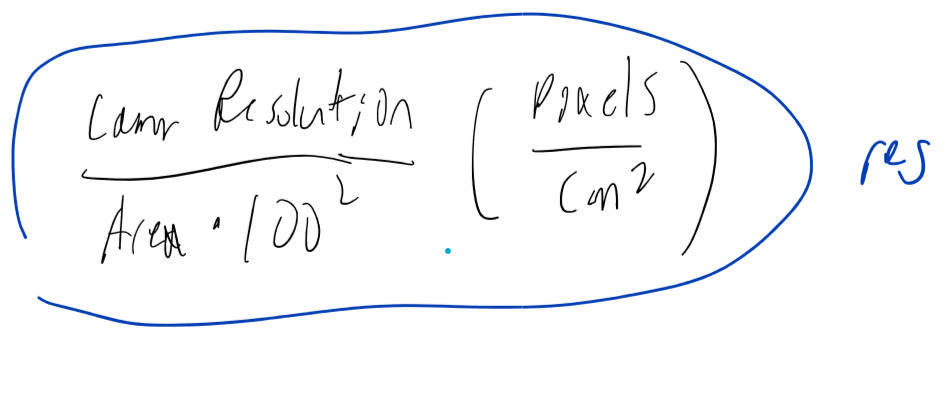 Cam Resolution
Area · 100²
( Pixels
cm² )
res